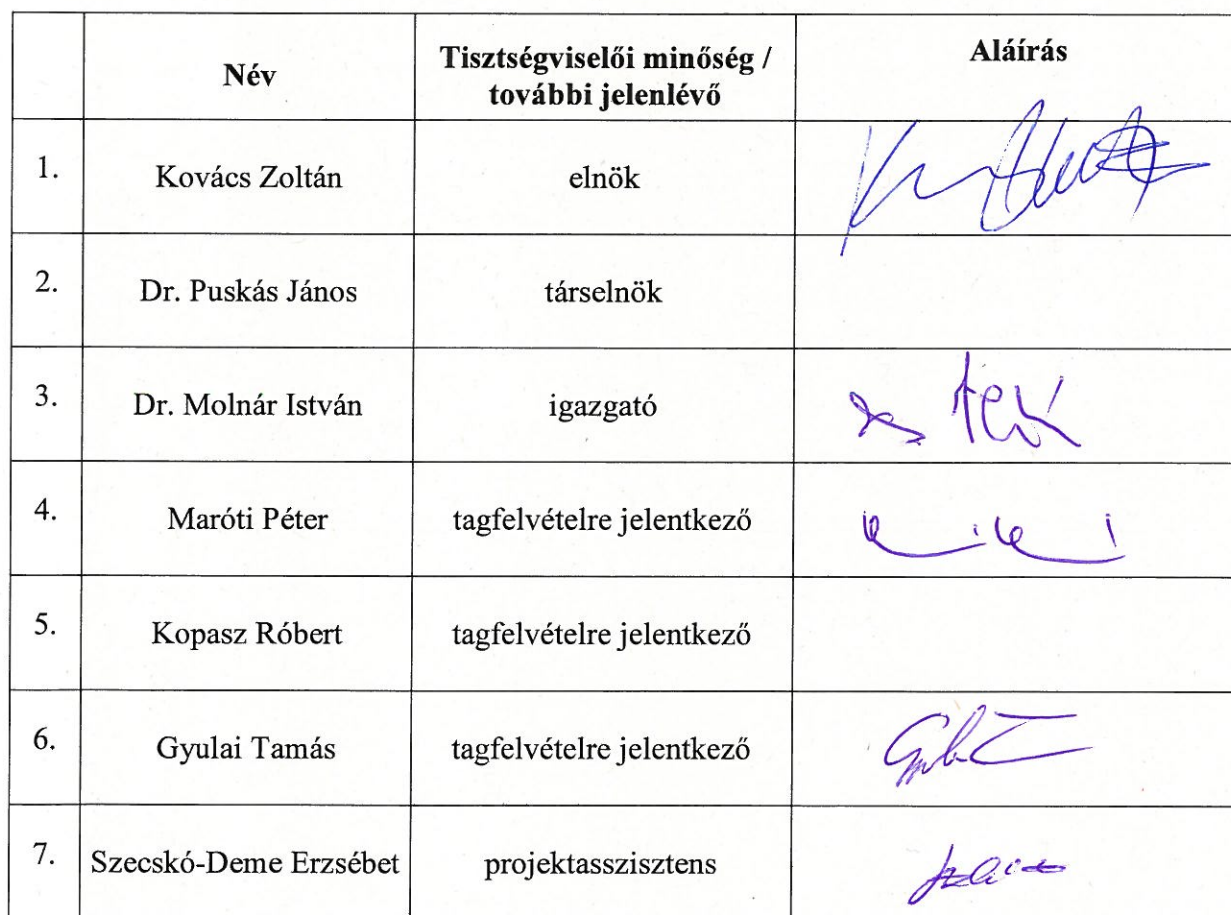 Név Tisztségviselői minőség / Aláírás
további jelenlévő
1. Kovács Zoltán elnök
2. Dr. Puskás János társelnök
3. Dr. Molnár István igazgató
4. Maróti Péter tagfelvételre jelentkező
5. Kopasz Róbert tagfelvételre jelentkező
6. Gyulai Tamás tagfelvételre jelentkező
7. Szecskó-Deme Erzsébet projektasszisztens